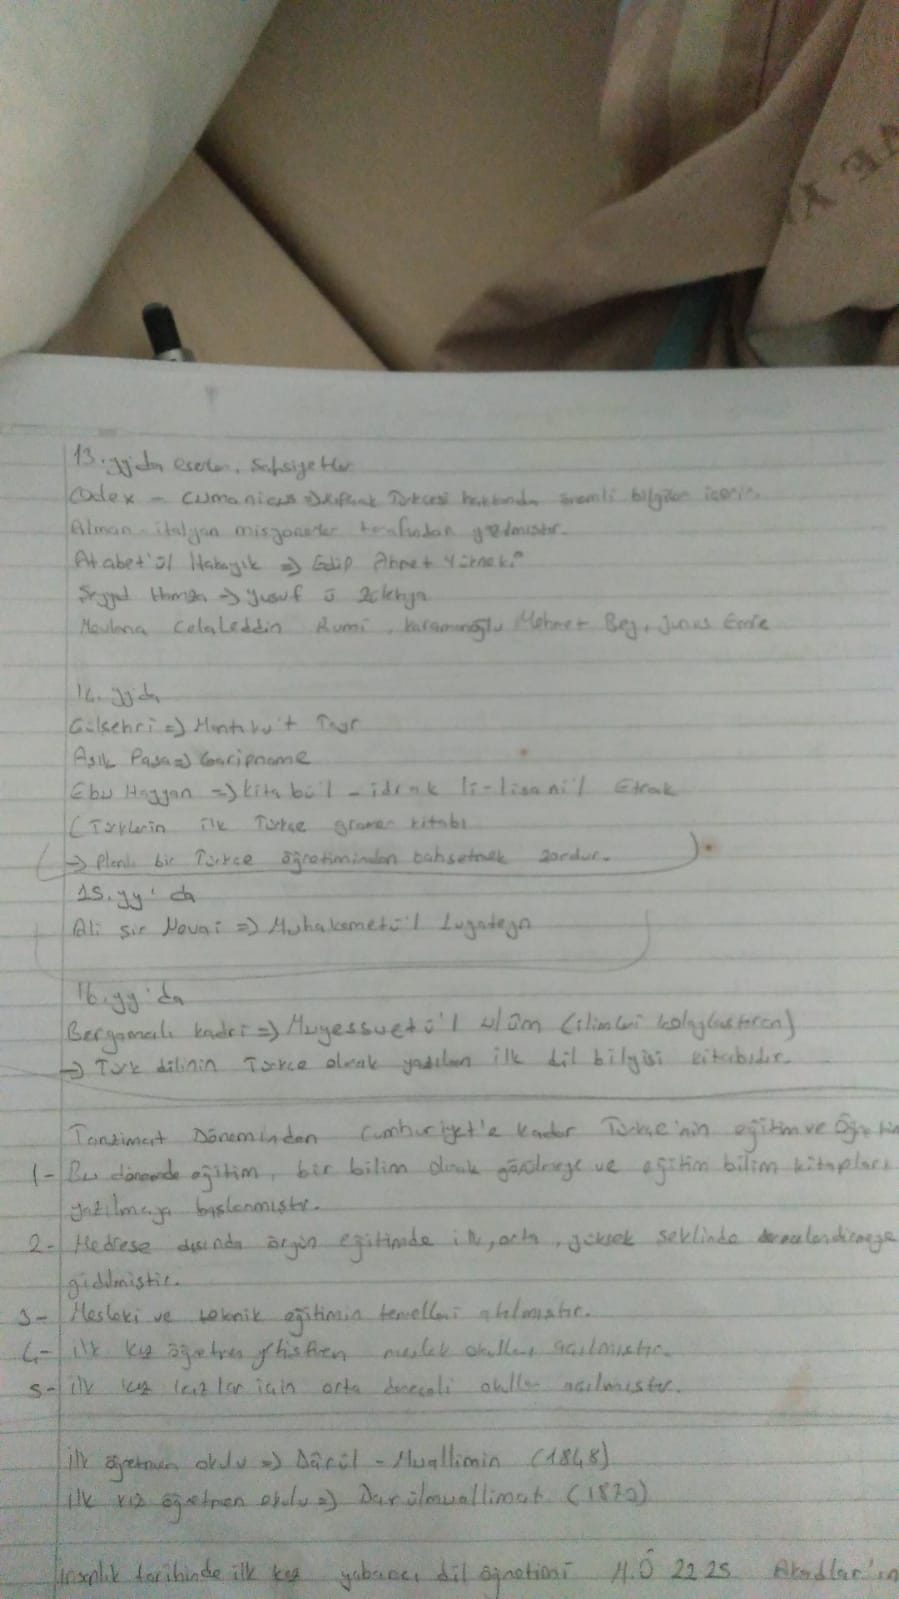 13. yy'da eserler, Şahsiyetler
Codex - Cumanicus => Kıpçak Türkçesi hakkında önemli bilgiler içerir.
Alman - italyan misyonerler tarafından yazılmıştır.
Atabet'ül Hakayık => Edip Ahmet Yükneki
=> Yusuf u Züleyha
Mevlana Celaleddin Rumi, Karamanoğlu Mehmet Bey, Yunus Emre
14. yy'da
Gülşehri => Mantıku't Tayr
Aşık Paşa => Garipname
Ebu Hayyan => Kitabü'l - idrak li-lisani'l Etrak
(Türklerin ilk Türkçe gramer kitabı
=> Planlı bir Türkçe öğretiminden bahsetmek zordur.
15. yy'da
Ali Şir Nevai => Muhakemetü'l Lugateyn
16. yy'da
Bergamalı Kadri => Muyessuetü'l ulûm (ilimleri kolaylaştıran)
-> Türk dilinin Türkçe olarak yazılan ilk dil bilgisi kitabıdır.
Tanzimat Döneminden Cumhuriyet'e kadar Türkçe'nin eğitim ve
1- Bu dönemde eğitim, bir bilim olarak görülmeye ve eğitim bilim kitapları
yazılmaya başlanmıştır.
2- Medrese dışında örgün eğitimde ilk, orta, yüksek şeklinde derecelendirmeye
gidilmiştir.
3- Mesleki ve teknik eğitimin temelleri atılmıştır.
4- ilk kez öğretmen yetiştiren meslek okulları açılmıştır.
5- ilk kez kızlar için orta dereceli okullar açılmıştır.
ilk öğretmen okulu => Dârül - Muallimin (1848)
ilk kız öğretmen okulu => Darülmuallimat (1870)
insanlık tarihinde ilk kez yabancı dil öğretimi M.Ö 2225 Akadlar'ın